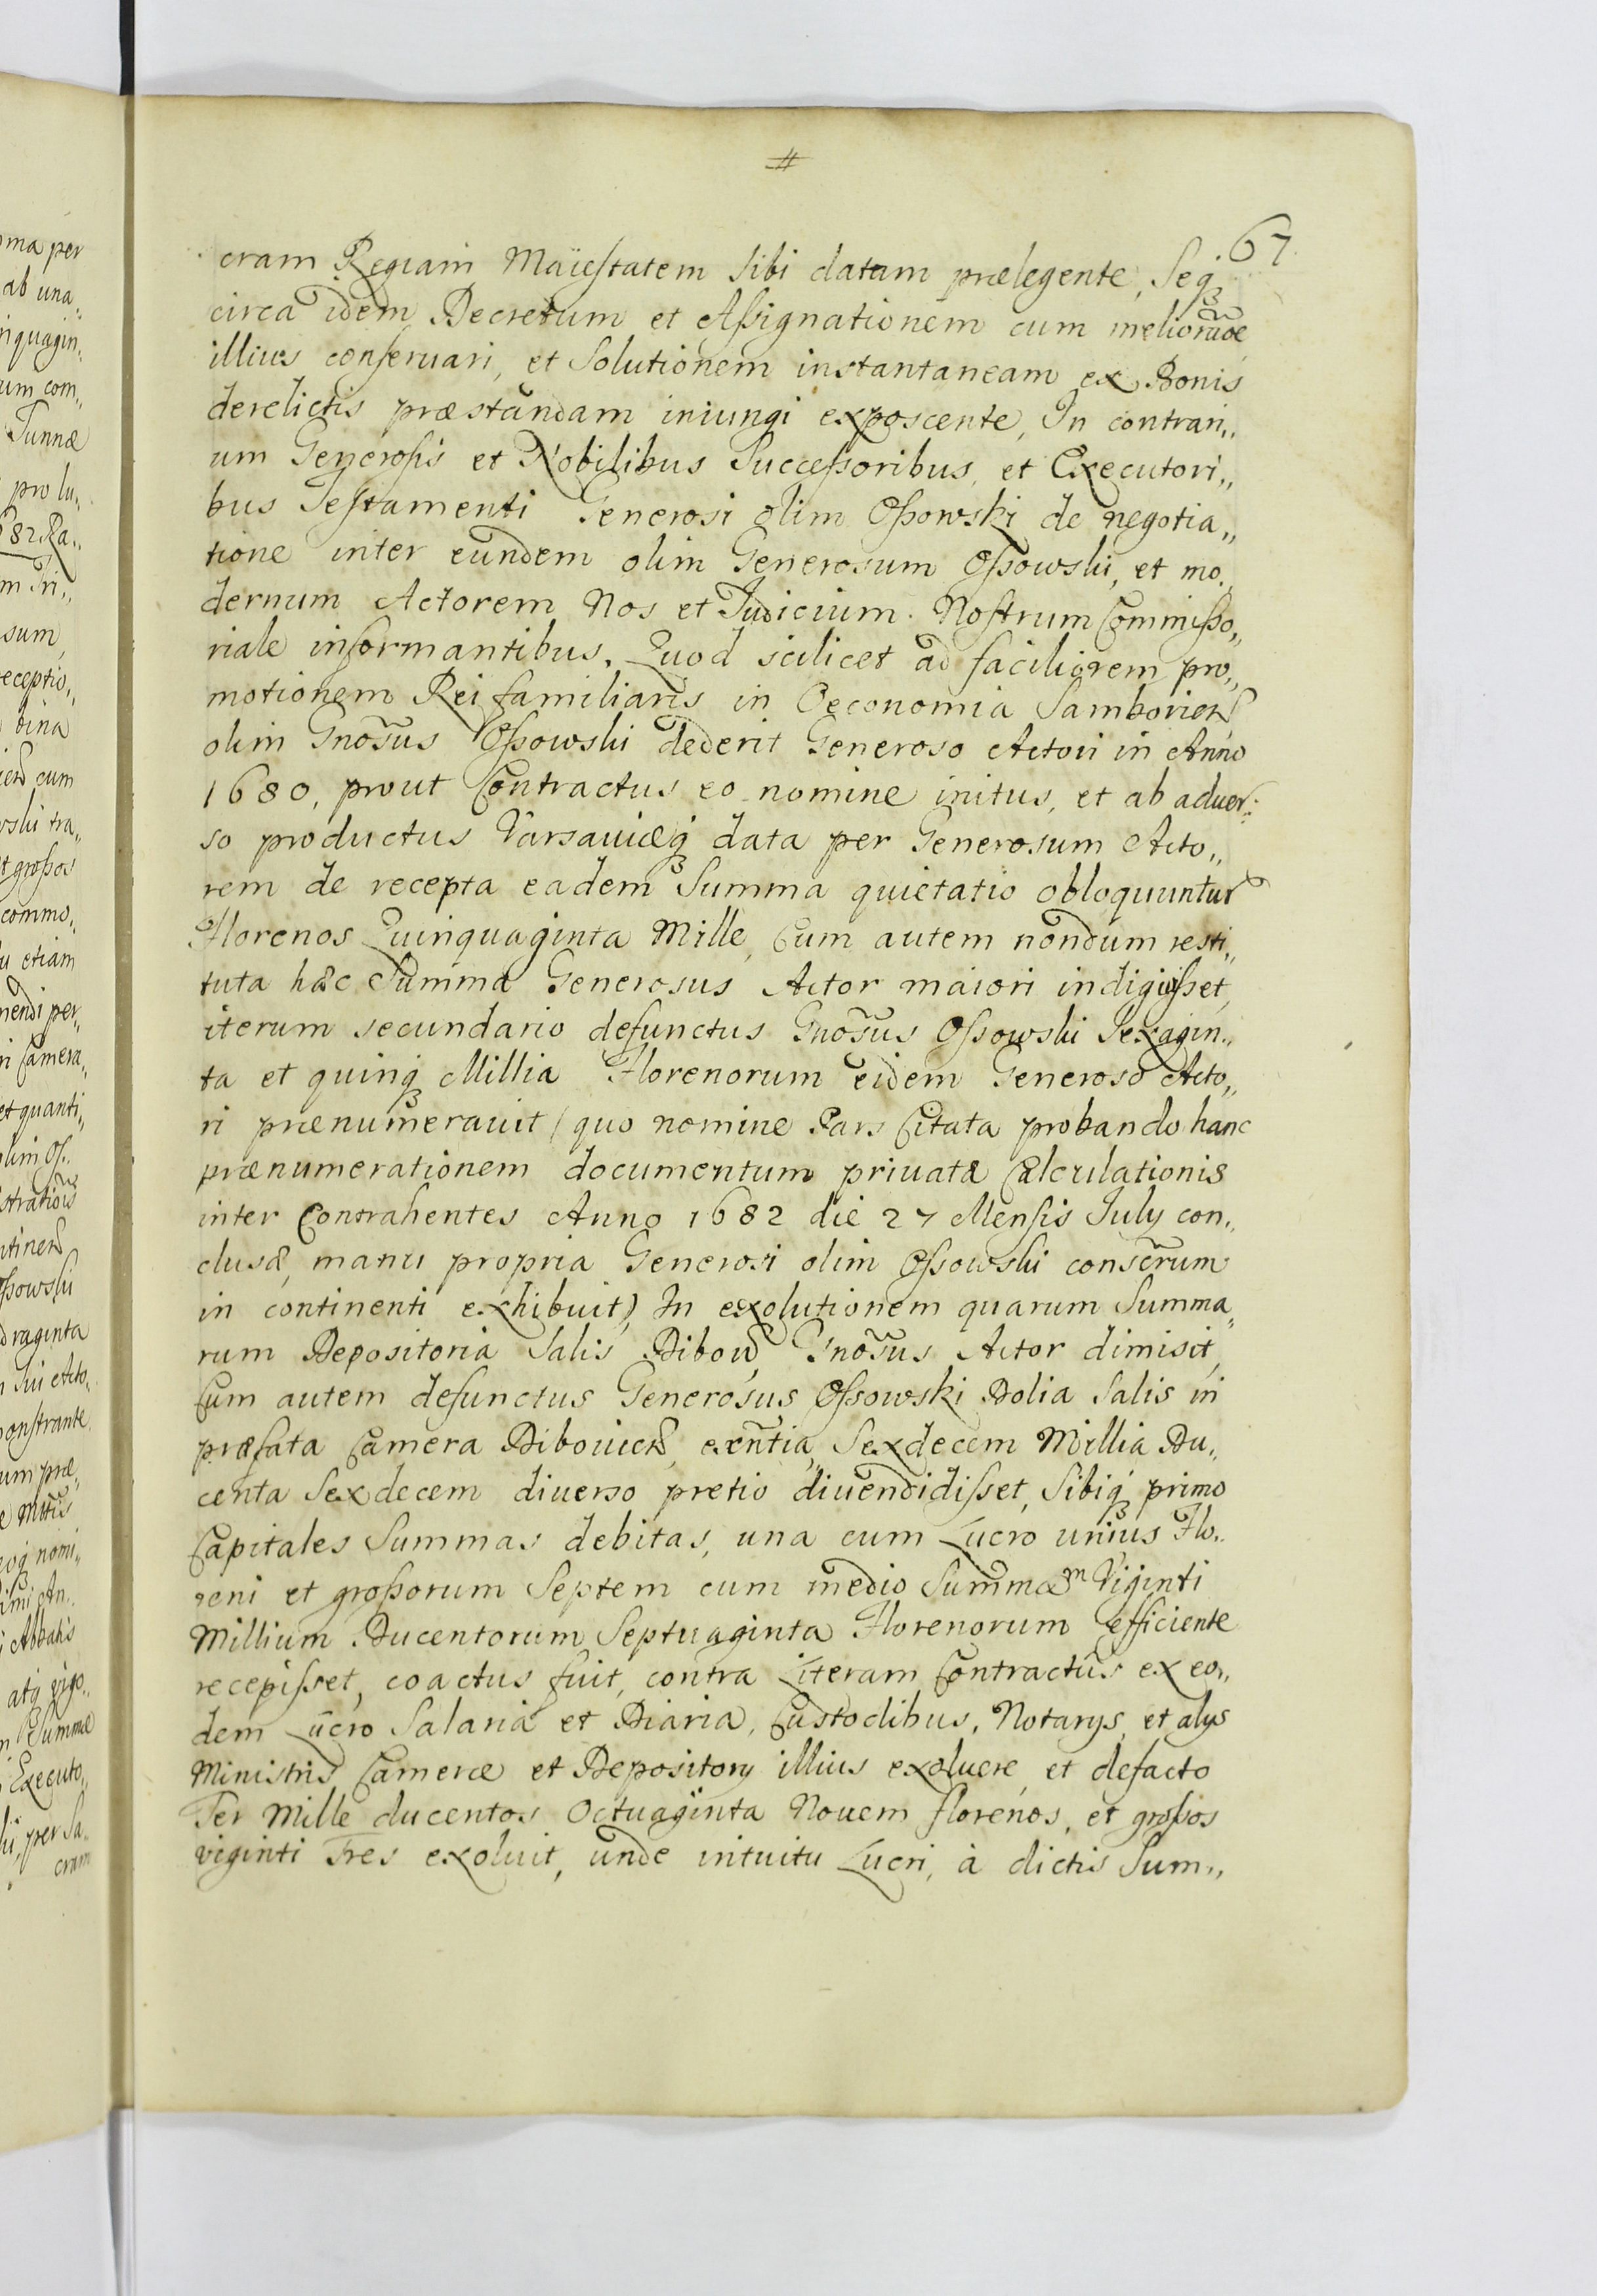 #
67
cram Regiam Maiestatem sibi datam prælegente, Seq́ꝫ
circa idem Decretum et Assignationem cum meliora͠oe
illius conseruari, et Solutionem instantaneam ex Bonis
derelictis præstandam iniungi exposcente, In contrari„
um Generosis et Nobilibus Successoribus, et Executori„
bus Testamenti Generosi olim Ossowski de negotia„
tione inter eundem olim Generosum Ossowski, et mo„
dernum Actorem Nos et Judicium Nostrum Commisso„
riale informantibus. Quod scilicet ad faciliorem pro„
motionem Rei familiaris in Oeconomia Samborien
olim Gno͠sus Ossowski dederit Generoso Actori in Anno
1680, prout Contractus eo nomine initus, et ab aduer„
so productus Varsauiæq́ꝫ data per Generosum Acto„
rem de recepta eadem Summa quietatio obloquuntur
Florenos Quinquaginta Mille, Cum autem nondum resti„
tuta hac Summa Generosus Actor maiori indiguisset,
iterum secundario defunctus Gno͠sus Ossowski Sexagin„
ta et quinq́ꝫ Millia Florenorum eidem Generoso Acto„
ri prænumerauit (quo nomine Pars Citata probando hanc
prænumerationem documentum priuatæ Calculationis
inter Contrahentes Anno 1682 die 27 Mensis July con„
clusæ, manu propria Generosi olim Ossowski conscr͠um
in continenti exhibuit) In exolutionem quarum Summa„
rum Depositoria Salis Dibow Gno͠sus Actor dimisit,
Cum autem defunctus Generosus Ossowski Dolia Salis in
præfata Camera Dibouien, exn͠tia, Sexdecem Millia Du„
centa Sexdecem diuerso pretio diuendidisset, Sibiq́ꝫ primo
Capitales Summas debitas, una cum Lucro unius Flo„
reni et grossorum Septem cum medio Summam Viginti
Millium Ducentorum Septuaginta Florenorum efficiente
recepisset, coactus fuit, contra Literam Contractus ex eo„
dem Lucro Salaria et Diaria, Custodibus, Notarys, et alys
Ministris Cameræ et Depository illius exoluere, et defacto
Ter Mille ducentos Octuaginta Nouem florenos, et grossos
viginti Tres exoluit, unde intuitu Lucri, à dictis Sum„